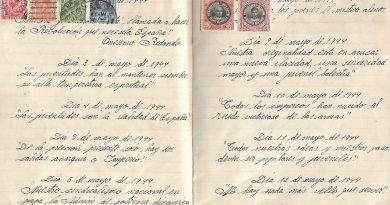 llamada a hacer
la Revolución que necesita España"
Onésimo Redondo
Día 3 de mayo de 1944
Las juventudes han de mantenerse
a la temperatura espiritual
Día 4 de mayo de 1944
"Las juventudes son la realidad de España"
Día 5 de mayo de 1944
De la posición presente no hay dos
salidas anarquía o "Imperio"
Día 6 de mayo de 1944
Nuestro sindicalismo nacional en
para la Nación el potencia dinámica
de nuestro
Día 9 de mayo de 1944
"Nuestra originalidad está en
una nueva claridad, una sinceridad
mayor y una juvenil valentía"
Día 10 de mayo de 1944
"Todos los imperios han nacido al
ruido victorioso de las armas"
Día 11 de mayo de 1944
"Todas nuestras ideas y nuestro paso
deben ser populares y juveniles"
Día 12 de mayo de 1944
"No hay nada más bello que servir"